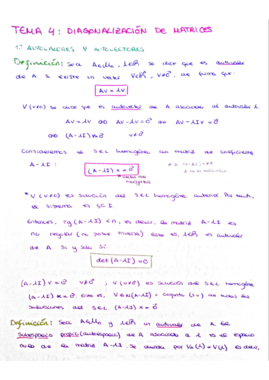 TEMA 4: DIAGONALIZACIÓN DE MATRICES
AUTOVALORES Y AUTOVECTORES
Definición: Sea A∈Mn, λ∈ℝ se dice que es autovalor
de A si existe un vector v∈ℝⁿ, v≠0, de forma que:
Av = λv
v (v≠0) se dice que es autovector de A asociado al autovalor λ
Av = λv ⇔ Av - λv = 0 ⇔ Av - λIv = 0
⇔ (A-λI)v = 0 v≠0
Consideremos el SEL homogéneo con matriz de coeficientes
A-λI:
(A-λI)x = 0
* v (v≠0) es solución del SEL homogéneo anterior. Por tanto,
el sistema es SCI.
Entonces, rg(A-λI) < n, es decir, la matriz A-λI es
no regular (no posee inversa). Esto es, λ∈ℝ es autovalor
de A si y solo si
det(A-λI) = 0
(A-λI)v = 0 v≠0 ; v (v≠0) es solución del SEL homogéneo
(A-λI)x = 0. Esto es, v∈N(A-λI) = conjunto de todas las
soluciones del SEL (A-λI)x = 0
Definición: Sea A∈Mn y λ∈ℝ un autovalor de A. El
subespacio propio (autoespacio) de A asociado a λ es el espacio
nulo de la matriz A-λI. Se denota por